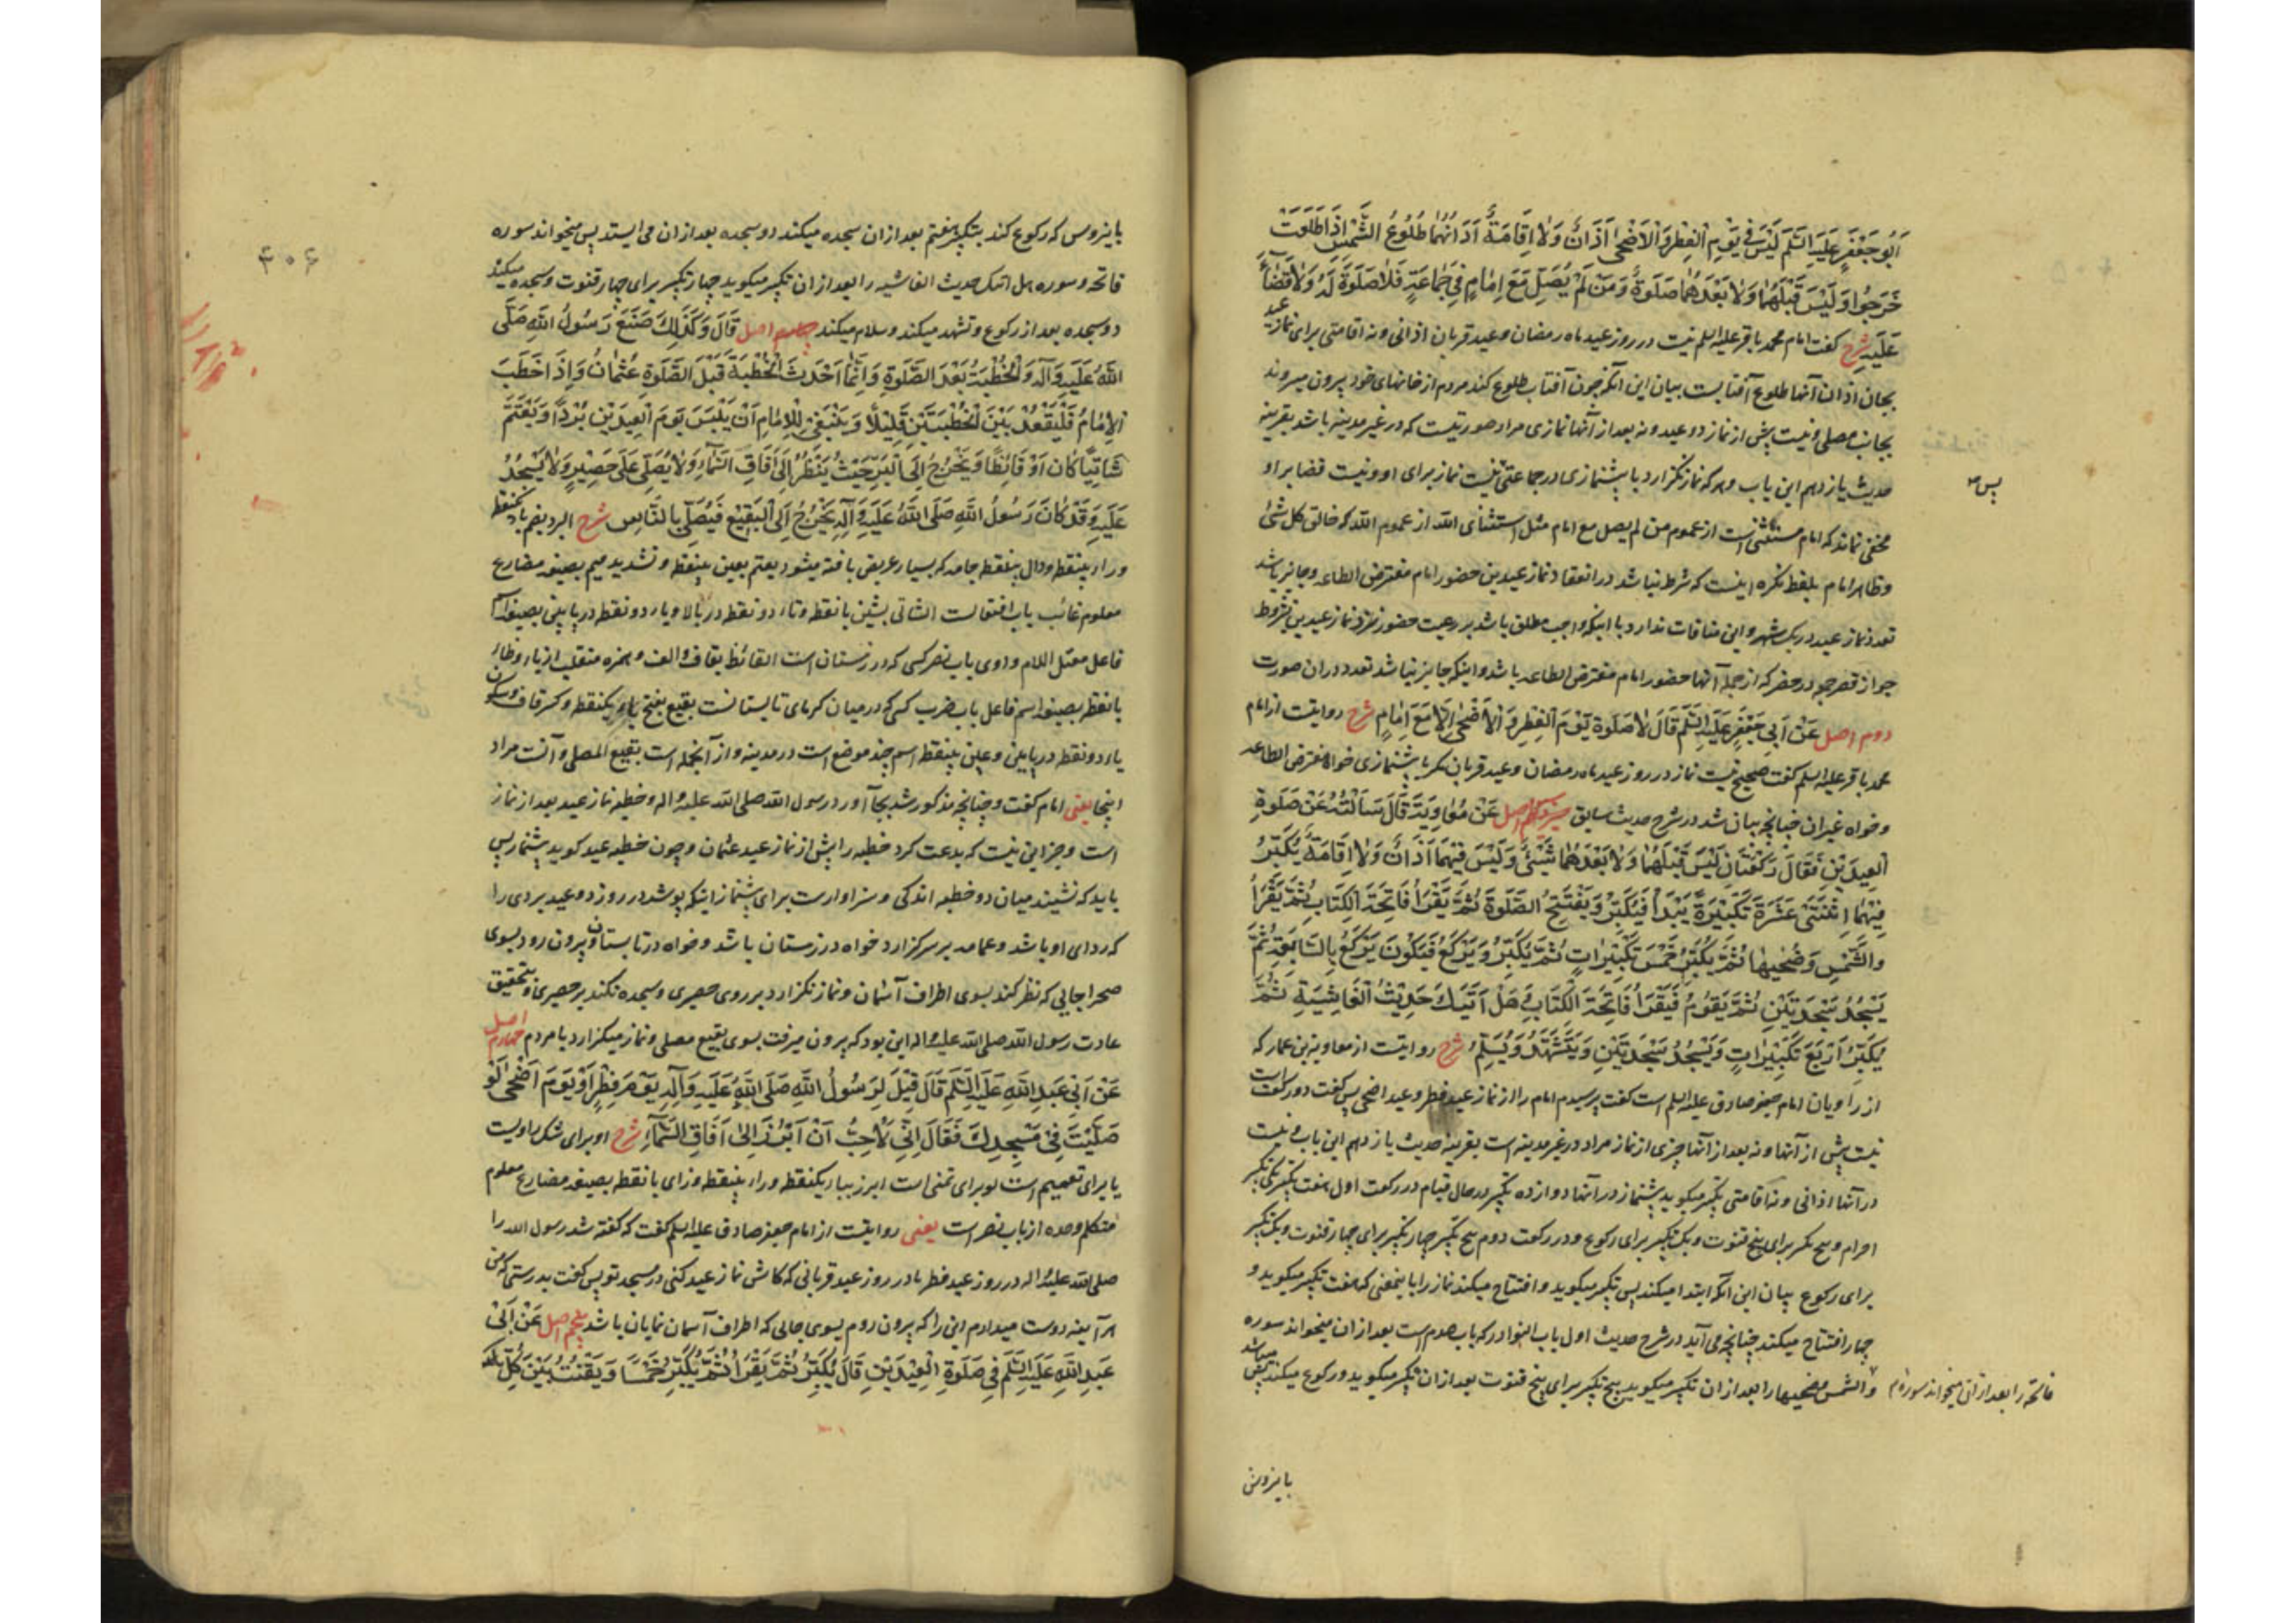 أَبُو جَعْفَرٍ عَلَيْهِ السَّلَمُ لَيْسَ فِي يَوْمِ الْفِطْرِ وَالْأَضْحَى أَذَانٌ وَلَا إِقَامَةٌ أَذَانُهُمَا طُلُوعُ الشَّمْسِ إِذَا طَلَعَتْ
خَرَجُوا وَلَيْسَ قَبْلَهُمَا وَلَا بَعْدَهُمَا صَلَوةٌ وَمَنْ لَمْ يُصَلِّ مَعَ إِمَامٍ فِي جَمَاعَةٍ فَلَا صَلَوةَ لَهُ وَلَا قَضَاءَ
عَلَيْهِ شرح گفت امام محمد باقر علیه السلم نیست در روز عید ماه رمضان و عید قربان اذانی و نه اقامتی برای نماز عید
بجای اذان آنها طلوع آفتابست بیان این آنکه چون آفتاب طلوع کند مردم از خانهای خود بیرون میروند
بجانب مصلی و نیست پیش از نماز دو عید و نه بعد از آنها نمازی مراد صورتیست که در غیر مدینه باشد بقرینه
حدیث یازدهم این باب و هر که نماز نگزارد با پیشنمازی در جماعتی نیست نماز برای او و نیست قضا بر او
پس
مخفی نماند که امام مستثنی است از عموم من لم یصل مع امام مثل استثنای الله از عموم الله خالق کل شئ
و ظاهر امام بلفظ نکره اینست که شرط نباشد در انعقاد نماز عیدین حضور امام مفترض الطاعه و جایز باشد
تعدد نماز عید در یک شهر و این منافات ندارد با اینکه واجب مطلق باشد بر رعیت حضور نزد نماز عیدین بشروط
جواز قصر جمعه در حضر که از جمله آنها حضور امام مفترض الطاعه باشد و اینکه جایز نباشد تعدد در ان صورت
دوم اصل عَنْ أَبِي جَعْفَرٍ عَلَيْهِ السَّلَمُ قَالَ لَا صَلَوةَ يَوْمَ الْفِطْرِ وَالْأَضْحَى إِلَّا مَعَ إِمَامٍ شرح روایتست از امام
محمد باقر علیه السلم گفت صحیح نیست نماز در روز عید ماه رمضان و عید قربان مگر با پیشنمازی خواه مفترض الطاعه
و خواه غیر ان چنانچه بیان شد در شرح حدیث سابق اصل عَنْ مُعَاوِيَةَ قَالَ سَأَلْتُهُ عَنْ صَلَوةِ
الْعِيدَيْنِ فَقَالَ رَكْعَتَانِ لَيْسَ قَبْلَهُمَا وَلَا بَعْدَهُمَا شَيْءٌ وَلَيْسَ فِيهِمَا أَذَانٌ وَلَا إِقَامَةٌ يُكَبِّرُ
فِيهِمَا اثْنَتَيْ عَشْرَةَ تَكْبِيرَةً يَبْدَأُ فَيُكَبِّرُ وَيَفْتَتِحُ الصَّلَوةَ ثُمَّ يَقْرَأُ فَاتِحَةَ الْكِتَابِ ثُمَّ يَقْرَأُ
وَالشَّمْسِ وَضُحَيهَا ثُمَّ يُكَبِّرُ خَمْسَ تَكْبِيرَاتٍ ثُمَّ يُكَبِّرُ وَيَرْكَعُ فَيَكُونُ يَرْكَعُ بِالسَّابِعَةِ ثُمَّ
يَسْجُدُ سَجْدَتَيْنِ ثُمَّ يَقُومُ فَيَقْرَأُ فَاتِحَةَ الْكِتَابِ وَهَلْ أَتَيكَ حَدِيثُ الْغَاشِيَةِ ثُمَّ
يُكَبِّرُ أَرْبَعَ تَكْبِيرَاتٍ وَيَسْجُدُ سَجْدَتَيْنِ وَيَتَشَهَّدُ وَيُسَلِّمُ شرح روایتست از معاویة بن عمار که
از راویان امام جعفر صادق علیه السلم است گفت پرسیدم امام را از نماز عید فطر و عید اضحی پس گفت دو رکعت است
نیست پیش از آنها و نه بعد از آنها چیزی از نماز مراد در غیر مدینه است بقرینه حدیث یازدهم این باب و نیست
در آنها اذانی و نه اقامتی تکبیر میگوید پیشنماز در آنها دوازده تکبیر در حال قیام در رکعت اول هفت تکبیر یکی تکبیر
احرام و پنج تکبیر برای پنج قنوت و یک تکبیر برای رکوع و در رکعت دوم پنج تکبیر چهار تکبیر برای چهار قنوت و یک تکبیر
برای رکوع بیان این آنکه ابتدا میکند پس تکبیر میگوید و افتتاح میکند نماز را باینمعنی که هفت تکبیر میگوید و
چهار افتتاح میکند چنانچه می آید در شرح حدیث اول باب النوادر که باب صدم است بعد از ان میخواند سوره
فاتحه را بعد از ان میخواند سوره
والشمس وضحیها را بعد از ان تکبیر میگوید پنج تکبیر برای پنج قنوت بعد از ان تکبیر میگوید و رکوع میکند پس میباشد
باینروش
۴۰۶
باینروش که رکوع کند بتکبیر هفتم بعد از ان سجده میکند دو سجده بعد از ان می ایستد پس میخواند سوره
فاتحه و سوره هل اتیک حدیث الغاشیه را بعد از ان تکبیر میگوید چهار تکبیر برای چهار قنوت و سجده میکند
دو سجده بعد از رکوع و تشهد میکند و سلام میکند اصل قَالَ وَكَذَلِكَ صَنَعَ رَسُولُ اللهِ صَلَّى
اللهُ عَلَيْهِ وَآلِهِ وَالْخُطْبَةُ بَعْدَ الصَّلَوةِ وَإِنَّمَا أَحْدَثَ الْخُطْبَةَ قَبْلَ الصَّلَوةِ عُثْمَانُ وَإِذَا خَطَبَ
الْإِمَامُ فَلْيَقْعُدْ بَيْنَ الْخُطْبَتَيْنِ قَلِيلًا وَيَنْبَغِي لِلْإِمَامِ أَنْ يَلْبَسَ يَوْمَ الْعِيدَيْنِ بُرْدًا وَيَعْتَمَّ
شَاتِيًا كَانَ أَوْ قَائِظًا وَيَخْرُجُ إِلَى الْبَرِّ حَيْثُ يَنْظُرُ إِلَى آفَاقِ السَّمَاءِ وَلَا يُصَلِّي عَلَى حَصِيرٍ وَلَا يَسْجُدُ
عَلَيْهِ وَقَدْ كَانَ رَسُولُ اللهِ صَلَّى اللهُ عَلَيْهِ وَآلِهِ يَخْرُجُ إِلَى الْبَقِيعِ فَيُصَلِّي بِالنَّاسِ شرح البرد بضم باء یکنقطه
و راء بینقطه و دال بینقطه جامه که بسیار عریض بافته میشود یعتم بعین بینقطه و تشدید میم بصیغه مضارع
معلوم غائب باب افتعالست الشاتی بشین بانقطه و تاء دو نقطه در بالا و یاء دو نقطه در پایین بصیغه اسم
فاعل معتل اللام واوی باب نصر کسی که در زمستان است القائظ بقاف و الف و همزه منقلبه از یاء و ظاء
بانقطه بصیغه اسم فاعل باب ضرب کسی که در میان گرمای تابستانست بقیع بفتح باء یکنقطه و کسر قاف و سکون
یاء دو نقطه در پایین و عین بینقطه اسم چند موضع است در مدینه و از آنجمله است بقیع المصلی و آنست مراد
اینجا یعنی امام گفت و چنانچه مذکور شد بجا آورد رسول الله صلی الله علیه و اله و خطبه نماز عید بعد از نماز
است و جز این نیست که بدعت کرد خطبه را پیش از نماز عید عثمان و چون خطبه عید گوید پیشنماز پس
باید که نشیند میان دو خطبه اندکی و سزاوارست برای پیشنماز اینکه پوشد در روز دو عید بردی را
که ردای او باشد و عمامه بر سر گزارد خواه در زمستان باشد و خواه در تابستان و بیرون رود بسوی
صحرا جایی که نظر کند بسوی اطراف آسمان و نماز نگزارد بر روی حصیری و سجده نکند بر حصیری و بتحقیق
عادت رسول الله صلی الله علیه و اله این بود که بیرون میرفت بسوی بقیع مصلی و نماز میگزارد با مردم چهارم اصل
عَنْ أَبِي عَبْدِ اللهِ عَلَيْهِ السَّلَمُ قَالَ قِيلَ لِرَسُولِ اللهِ صَلَّى اللهُ عَلَيْهِ وَآلِهِ يَوْمَ فِطْرٍ أَوْ يَوْمَ أَضْحَى لَوْ
صَلَّيْتَ فِي مَسْجِدِكَ فَقَالَ إِنِّي لَأُحِبُّ أَنْ أَبْرُزَ إِلَى آفَاقِ السَّمَاءِ شرح او برای شک راویست
یا برای تعمیم است لو برای تمنی است ابرز بباء یکنقطه و راء بینقطه و زای بانقطه بصیغه مضارع معلوم
متکلم وحده از باب نصر است یعنی روایتست از امام جعفر صادق علیه السلم گفت که گفته شد رسول الله را
صلی الله علیه و اله در روز عید فطر یا در روز عید قربانی که کاش نماز عید کنی در مسجد تو پس گفت بدرستی که من
هر آینه دوست میدارم این را که بیرون روم بسوی جایی که اطراف آسمان نمایان باشد پنجم اصل عَنْ أَبِي
عَبْدِ اللهِ عَلَيْهِ السَّلَمُ فِي صَلَوةِ الْعِيدَيْنِ قَالَ يُكَبِّرُ ثُمَّ يَقْرَأُ ثُمَّ يُكَبِّرُ خَمْسًا وَيَقْنُتُ بَيْنَ كُلِّ